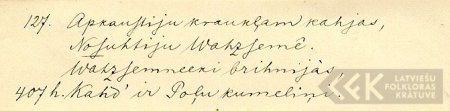 127. Apkaustiju kraukļam kahjas,
Nosuhtiju Wahzsemê.
Wahzsemneeki brihnijâs,
407h. Kahd' ir Poļu kumeliņi.
LATVIEŠU
FOLKLORAS
KRĀTUVE